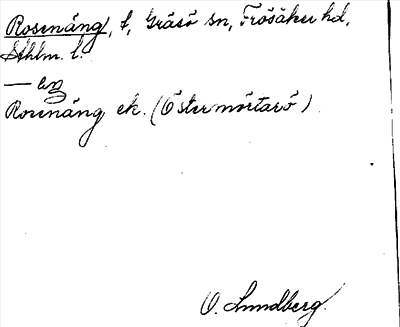 Rosenäng, t, Gräsö sn, Frösåker hd,
Sthlm. l.
Rosenäng ek. (Östermörtarö)
O. Lundberg.